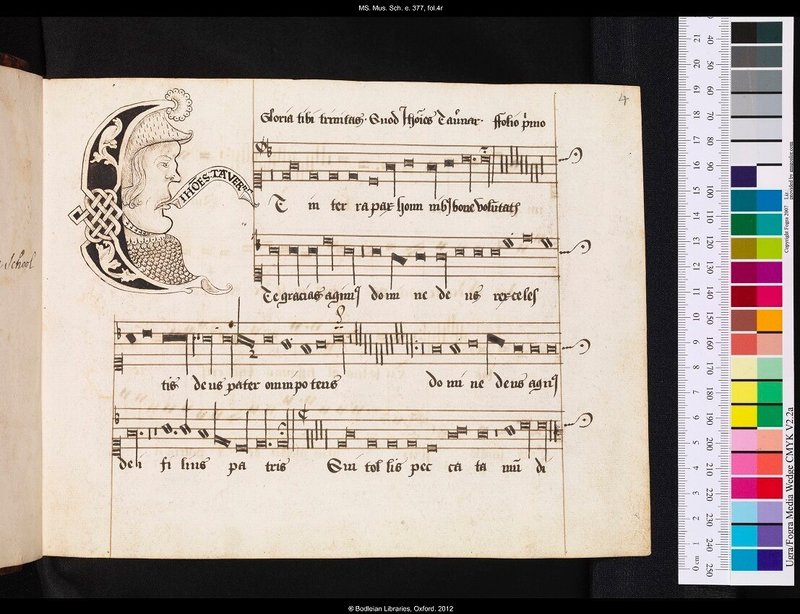 MS. Mus. Sch. e. 377, fol.4r
4
Gloria tibi trinitas. Quod Ihoēs Tavnar. ffolio p̄mo
IHOES. TAVER
T in ter ra pax homi nib9 bone volūtatis
Te gracias agim9 domi ne de us rex celes
School
tis de us pater omnipotens domine deus agn9
dei fi lius pa tris Qui tol lis pec ca ta mū di
Copyright Fogra 2007
Ugra/Fogra Media Wedge CMYK V2.2a
® Bodleian Libraries, Oxford. 2012